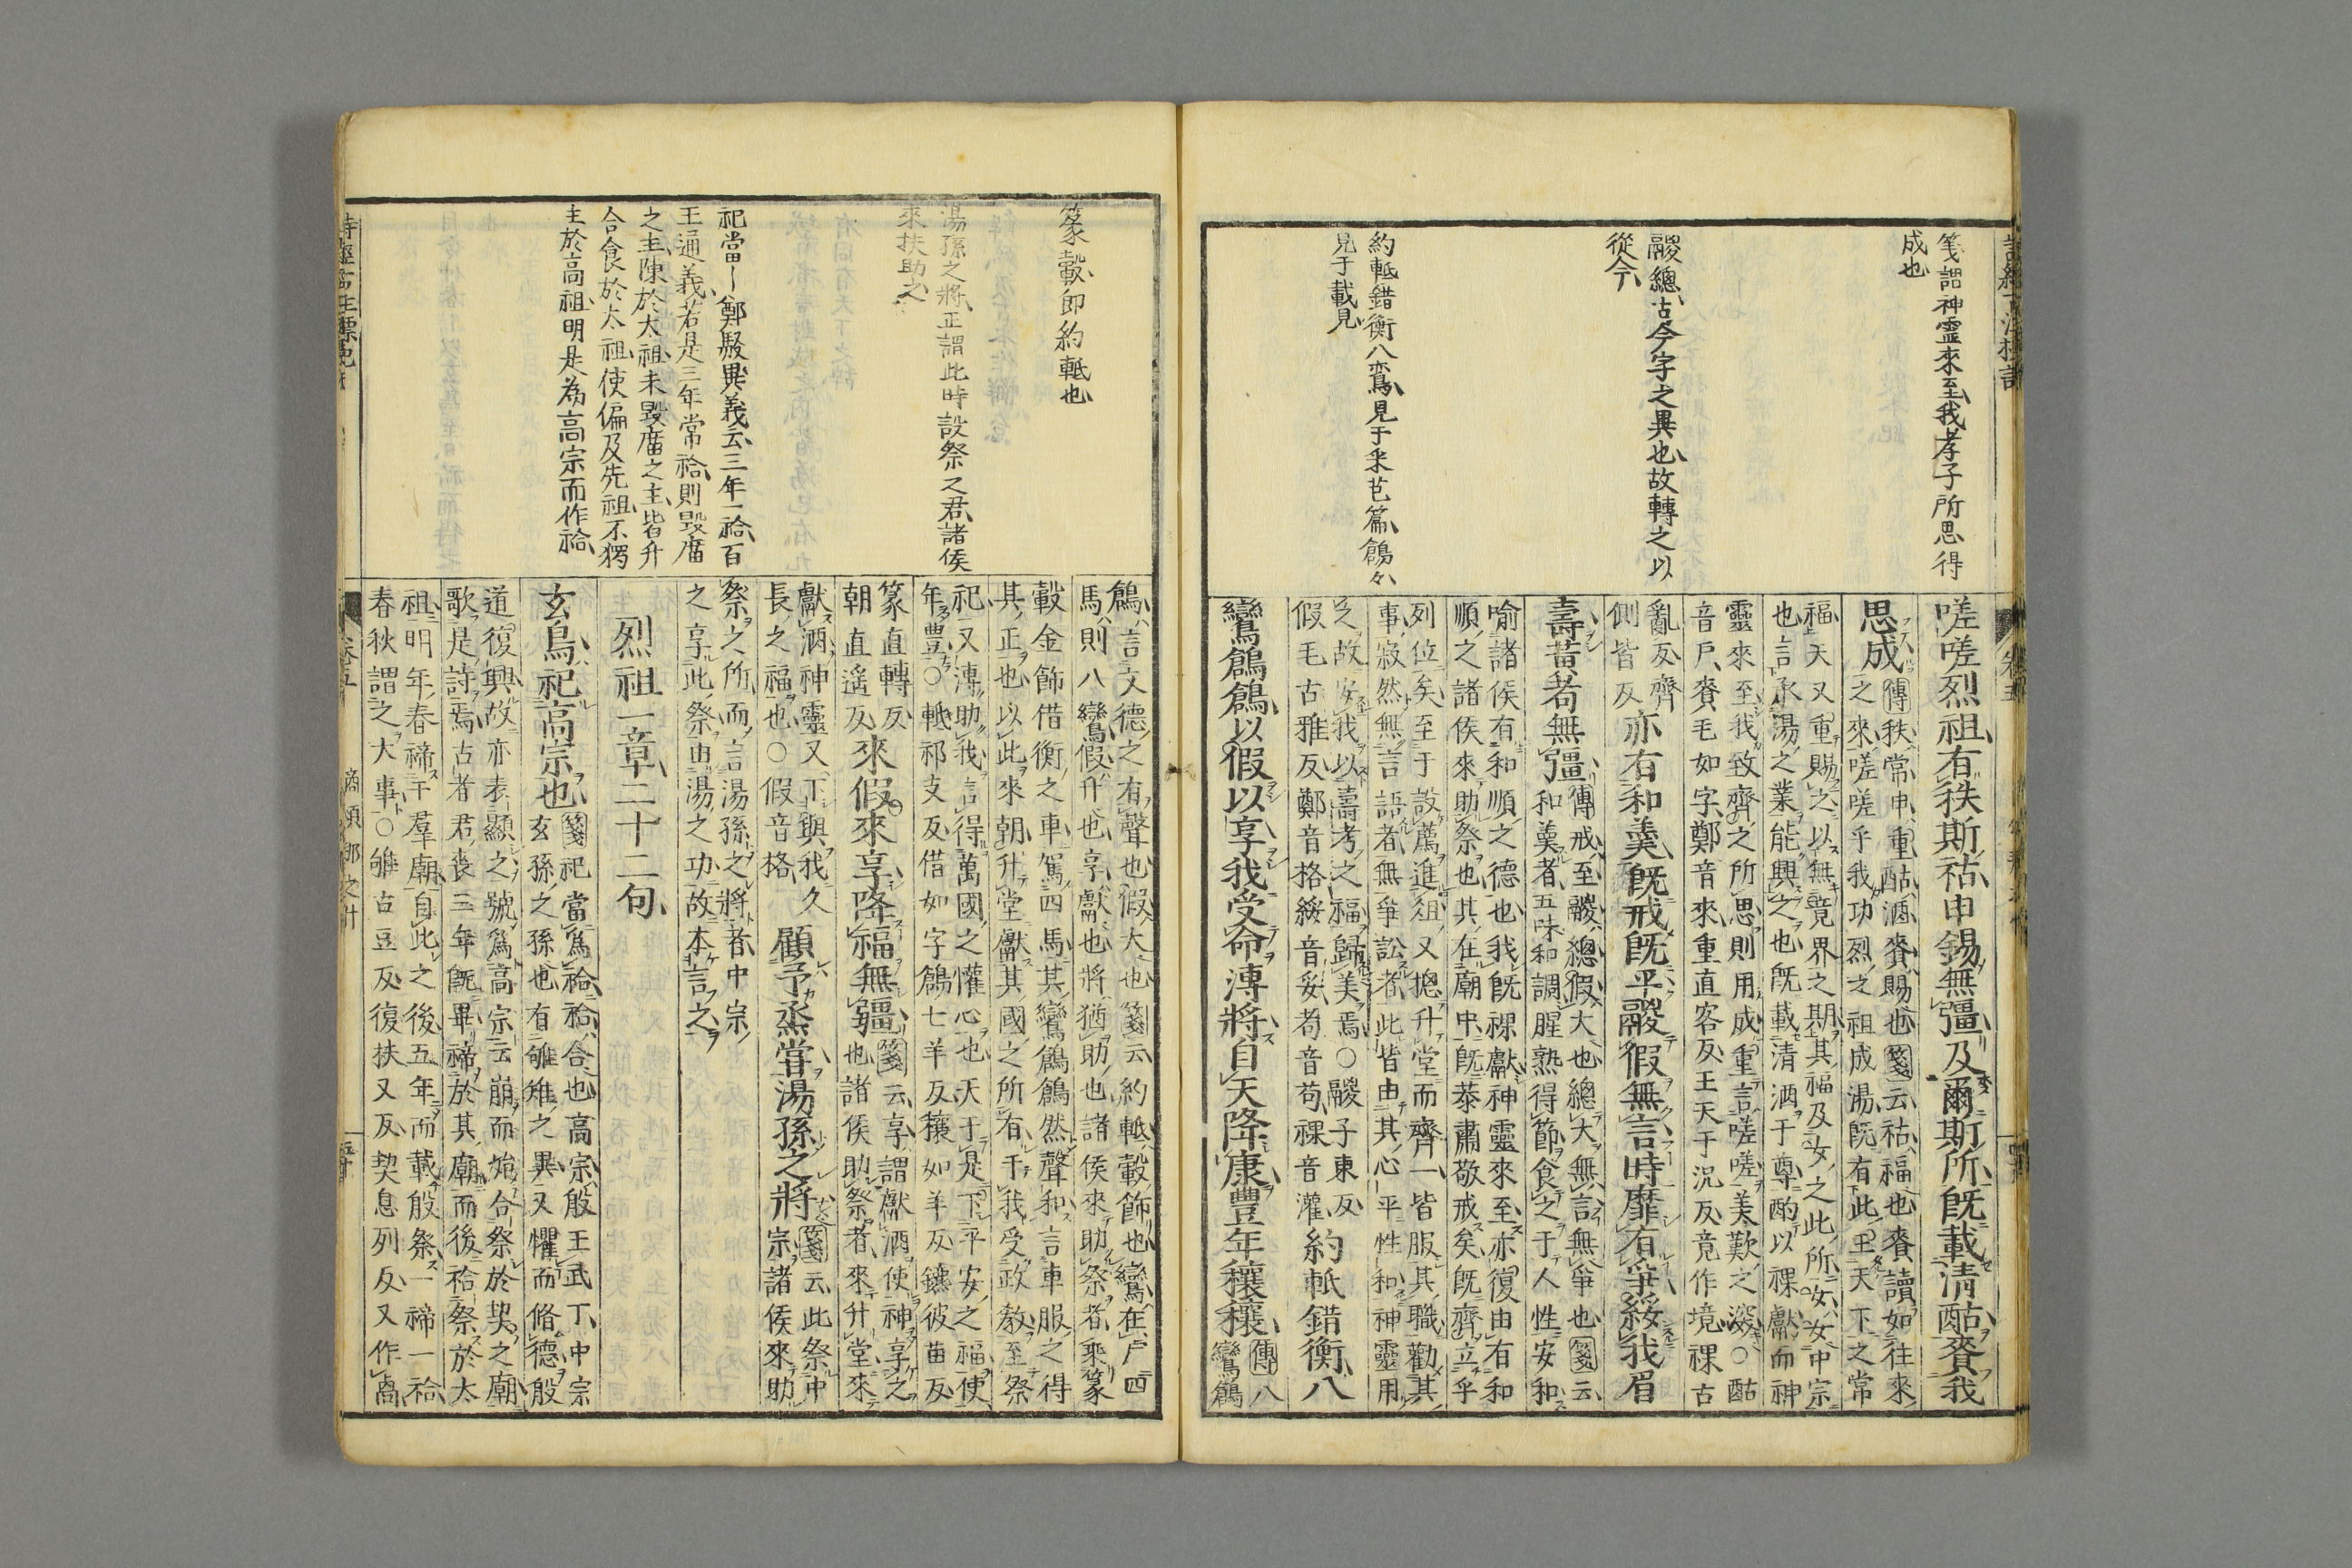 箋謂神靈來至我孝子所思得
成也
鬷總古今字之異也故轉之以
從今
約軧錯衡八鸞見于采芑篇鶬々
見于載見
嗟嗟烈祖有秩斯祜申錫無彊及爾斯所既載清酤賚我
思成
傳秩常申重酤酒賚賜也箋云祜福也賚讀如往來
之來嗟嗟乎我功烈之祖成湯既有此王天下之常
福天又重賜之以無竟界之期其福及女之此所女女中宗
也言承湯之業能興之也既載清酒于尊酌以祼獻而神
靈來至我致齊之所思則用成重言嗟嗟美歎之深○酤
音戶賚毛如字鄭音來重直容反王天于況反竟作境祼古
亂反齊
側皆反
亦有和羹既戒既平鬷假無言時靡有爭綏我眉
壽黃耇無彊
傳戒至鬷總假大也總大無言無爭也箋云
和羹者五味和調腥熟得節食之于人性安和
喻諸侯有和順之德也我既祼獻神靈來至亦復由有和
順之諸侯來助祭也其在廟中既恭肅敬戒矣既齊立乎
列位矣至于設薦進俎又揔升堂而齊一皆服其職勸其
事寂然無言語者無爭訟者此皆由其心平性和神靈用
之故安我以壽考之福歸美焉○鬷子東反
假毛古雅反鄭音格綏音妥耇音苟祼音灌
約軧錯衡八
鸞鶬鶬以假以享我受命溥將自天降康豐年穰穰
傳八
鸞鶬
篆轂即約軧也
湯孫之將正謂此時設祭之君諸侯
來扶助之
祀當｜鄭駁異義云三年一祫百
王通義若是三年常祫則毀廟
之主陳於太祖未毀廟之主皆升
合食於太祖使偏及先祖不獨
主於高祖明是為高宗而作祫
鶬言文德之有聲也假大也箋云約軧轂飾也鸞在戶四
馬則八鸞假升也享獻也將猶助也諸侯來助祭者乘篆
轂金飾借衡之車駕四馬其鸞鶬鶬然聲和言車服之得
其正也以此來朝升堂獻其國之所有于我受政教至祭
祀又溥助我言得萬國之懽心也天于是下平安之福使
年豊○軧祁支反借如字鶬七羊反穰如羊反鑣彼苗反
篆直轉反
朝直遙反
來假來享降福無疆
箋云享謂獻酒使神享之
也諸侯助祭者來升堂來
獻酒神靈又下與我久
長之福也○假音格
顧予烝嘗湯孫之將
箋云此祭中
宗諸侯來助
祭之所而言湯孫之將者中宗
之享此祭由湯之功故本言之
烈祖一章二十二句
玄鳥祀高宗也
箋祀當爲祫祫合也高宗殷王武丁中宗
玄孫之孫也有雊雉之異又懼而脩德殷
道復興故亦表顯之號爲高宗云崩而始合祭於契之廟
歌是詩焉古者君喪三年既畢禘於其廟而後祫祭於太
祖明年春禘于羣廟自此之後五年而載殷祭一禘一祫
春秋謂之大事○雊古豆反復扶又反契息列反又作卨